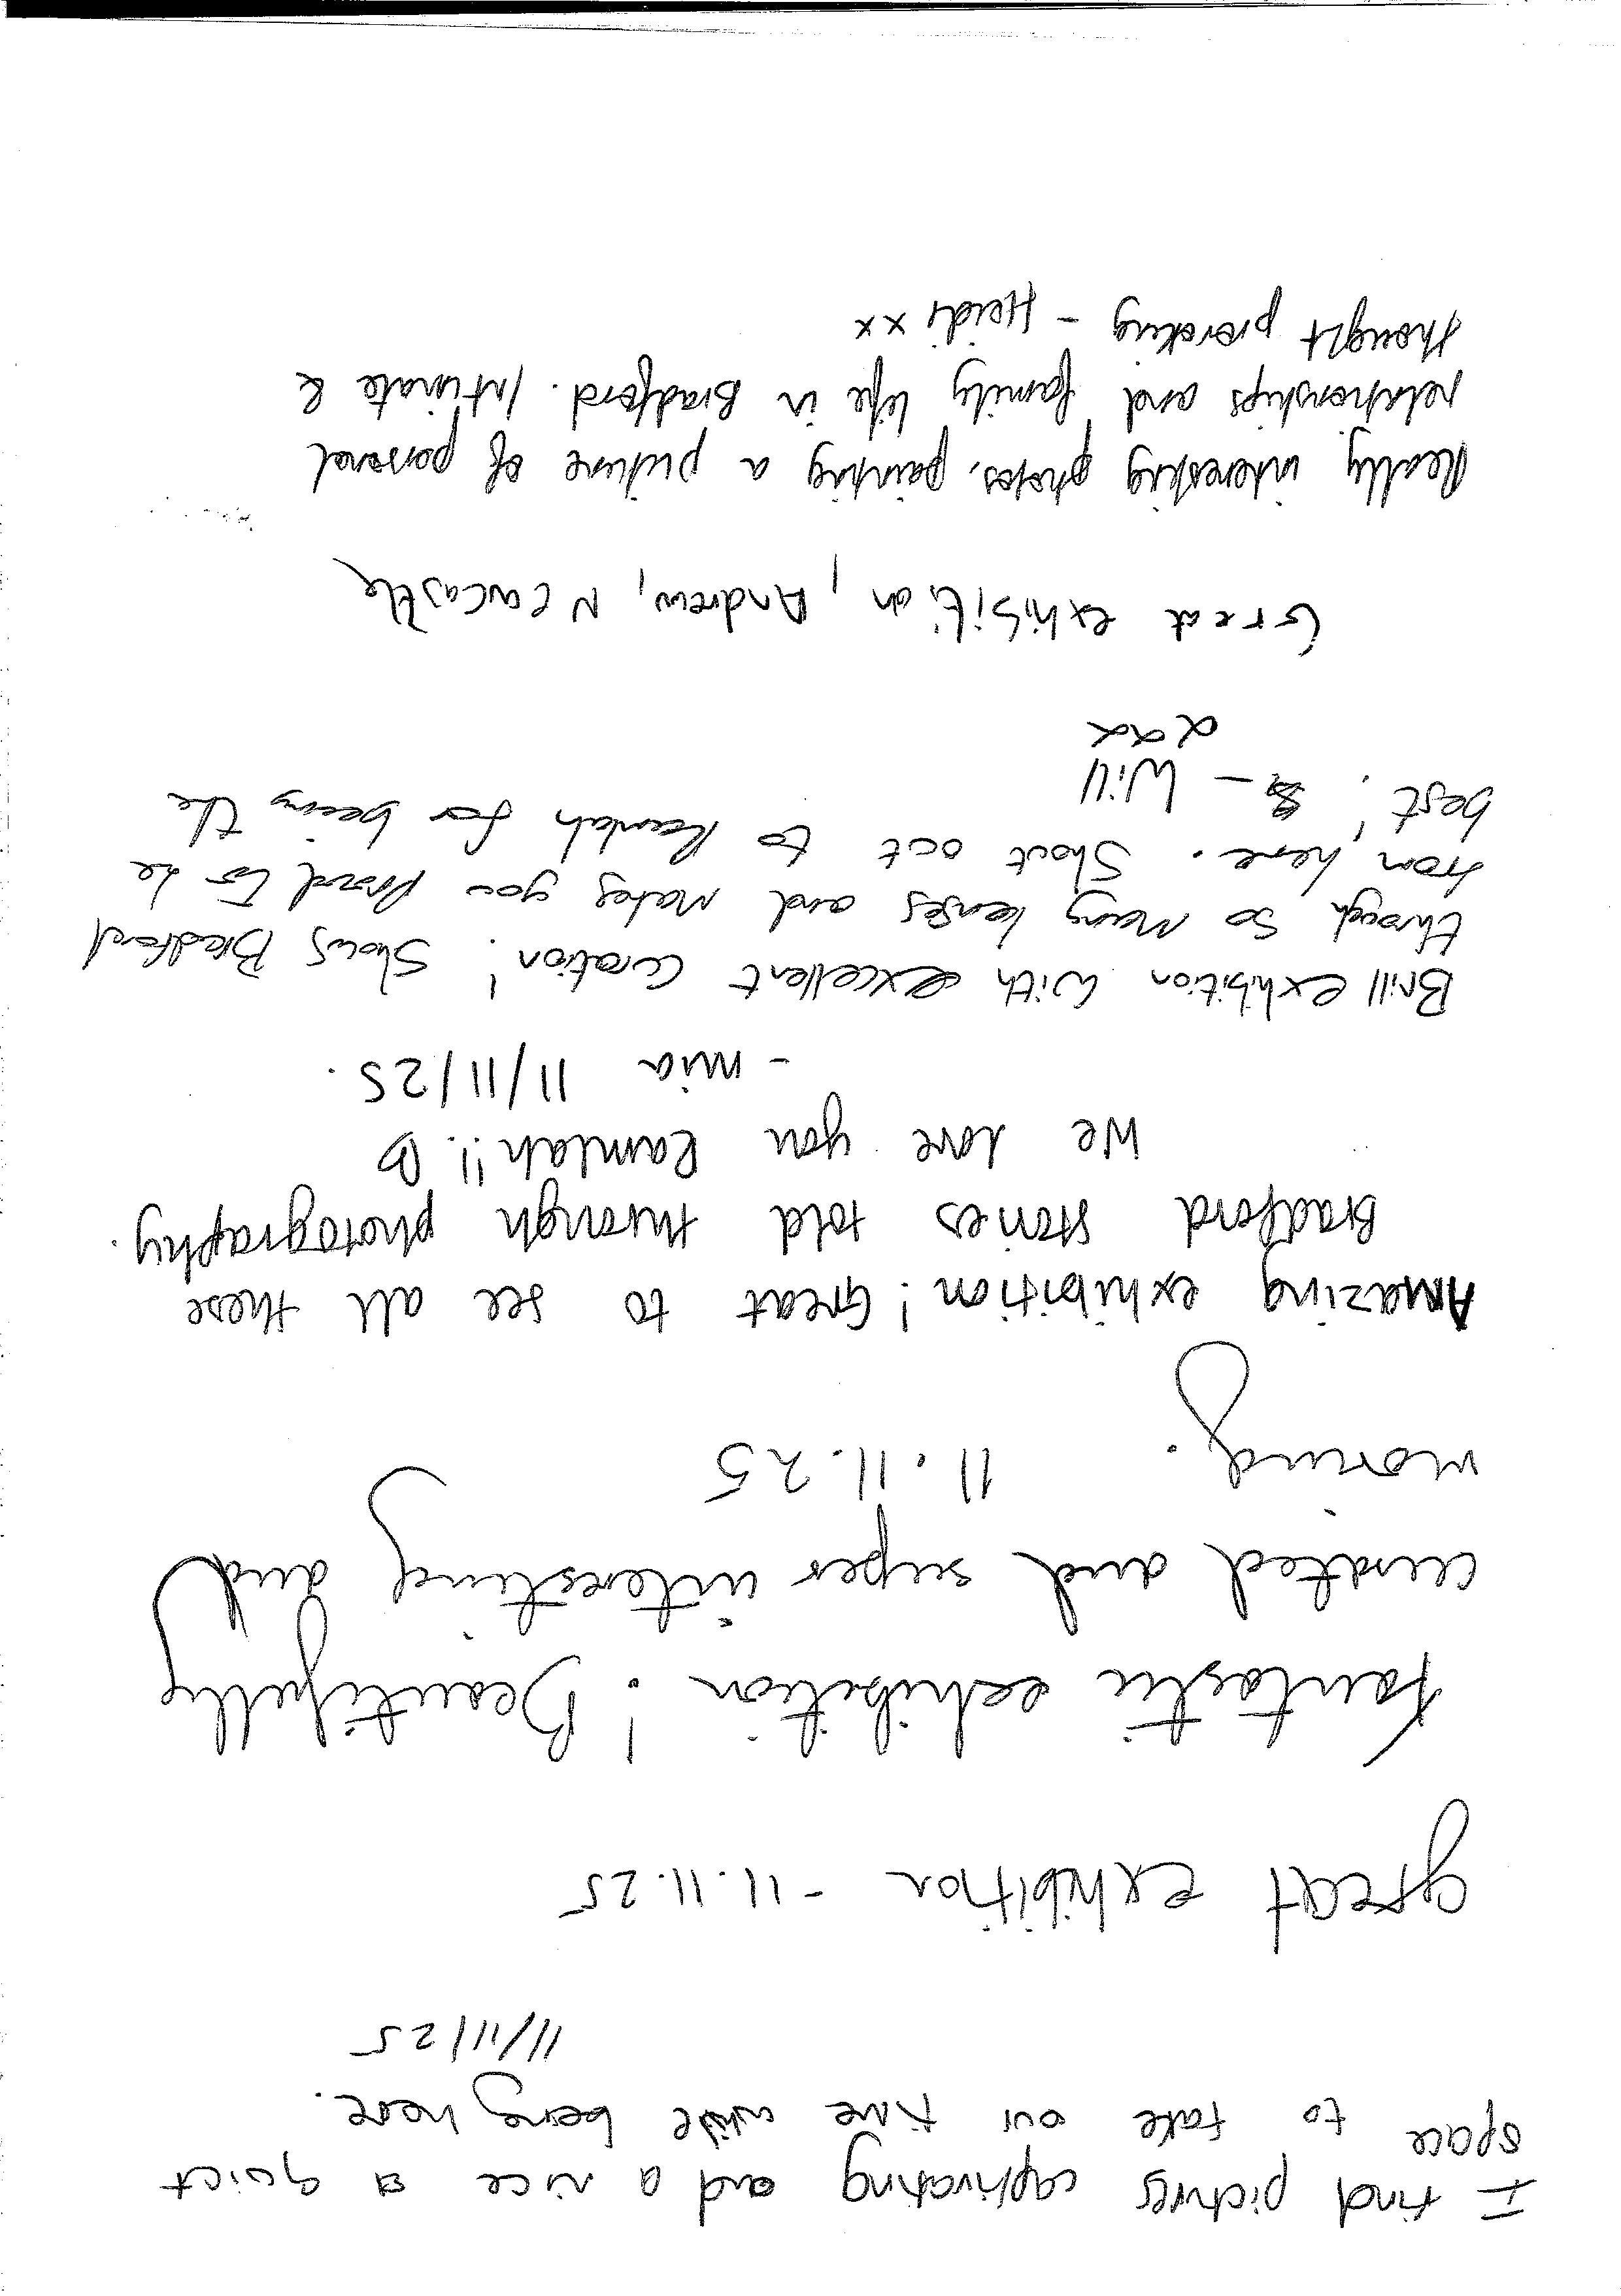 I find pictures captivating and a nice quiet
space to take our time while being here.
11/11/25
great exhibition - 11.11.25
Fantastic exhibition! Beautifully
curated and super interesting and
moving. 11.11.25
Amazing exhibition! Great to see all these
Bradford stories told through photography.
We love you Ramlah!! ♡
- mia 11/11/25.
Brill exhibition with excellent curation! Shows Bradford
through so many lenses and makes you proud to be
from here. Shout out to Ramlah for being the
best! - Will
Great exhibition, Andrew, Newcastle
Really interesting photos, painting a picture of personal
relationships and family life in Bradford. Intimate &
thought provoking - Heidi xx